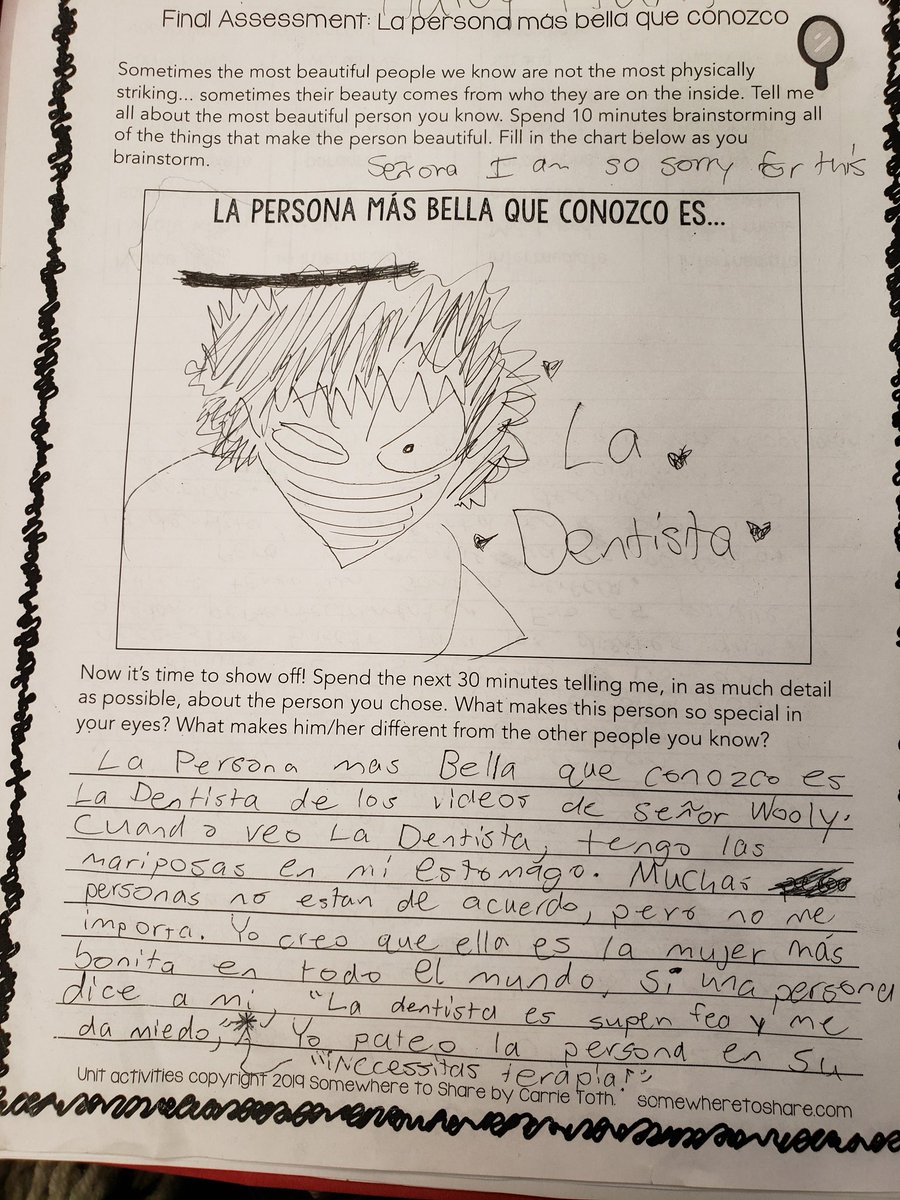 Final Assessment: La persona más bella que conozco
Sometimes the most beautiful people we know are not the most physically
striking... sometimes their beauty comes from who they are on the inside. Tell me
all about the most beautiful person you know. Spend 10 minutes brainstorming all
of the things that make the person beautiful. Fill in the chart below as you
brainstorm.
Señora I am so sorry for this
LA PERSONA MÁS BELLA QUE CONOZCO ES...
La
Dentista
Now it's time to show off! Spend the next 30 minutes telling me, in as much detail
as possible, about the person you chose. What makes this person so special in
your eyes? What makes him/her different from the other people you know?
La Persona mas Bella que conozco es
La Dentista de los videos de señor Wooly.
Cuando veo La Dentista, tengo las
mariposas en mi estomago. Muchas
personas no estan de acuerdo, pero no me
importa. Yo creo que ella es la mujer más
bonita en todo el mundo, Si una persona
dice a mi, "La dentista es super feo y me
da miedo," * Yo pateo la persona en su
"¡Necessitas terapia!"
Unit activities copyright 2019 Somewhere to Share by Carrie Toth. somewheretoshare.com